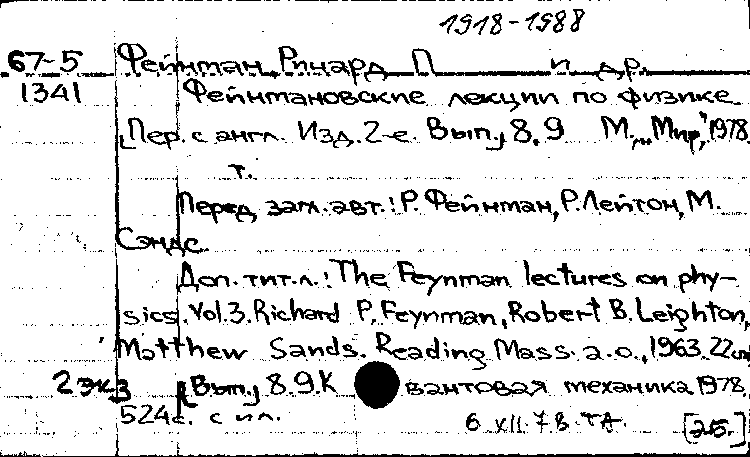 1918-1988
67-5 Фейнман, Ричард П и др.
1341 Фейнмановские лекции по физике
[Пер. с англ. Изд. 2-е. Вып., 8,9 М., "Мир", 1978.
т.
Перед загл. авт.: Р. Фейнман, Р. Лейтон, М.
Сэндс.
Доп. тит. л.: The Feynman lectures on phy-
sics. Vol. 3. Richard P. Feynman, Robert B. Leighton,
Matthew Sands. Reading Mass. a.o., 1963. 22см
2 экз [Вып., 8.9. К вантовая механика 1978.
524с. с ил. 6 XII. 78. ТА. [25.]